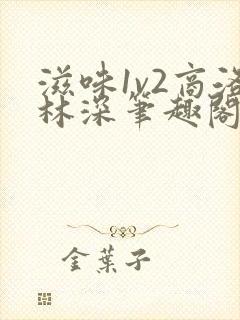 滋味1v2高洛
林深笔趣阁
金葉子